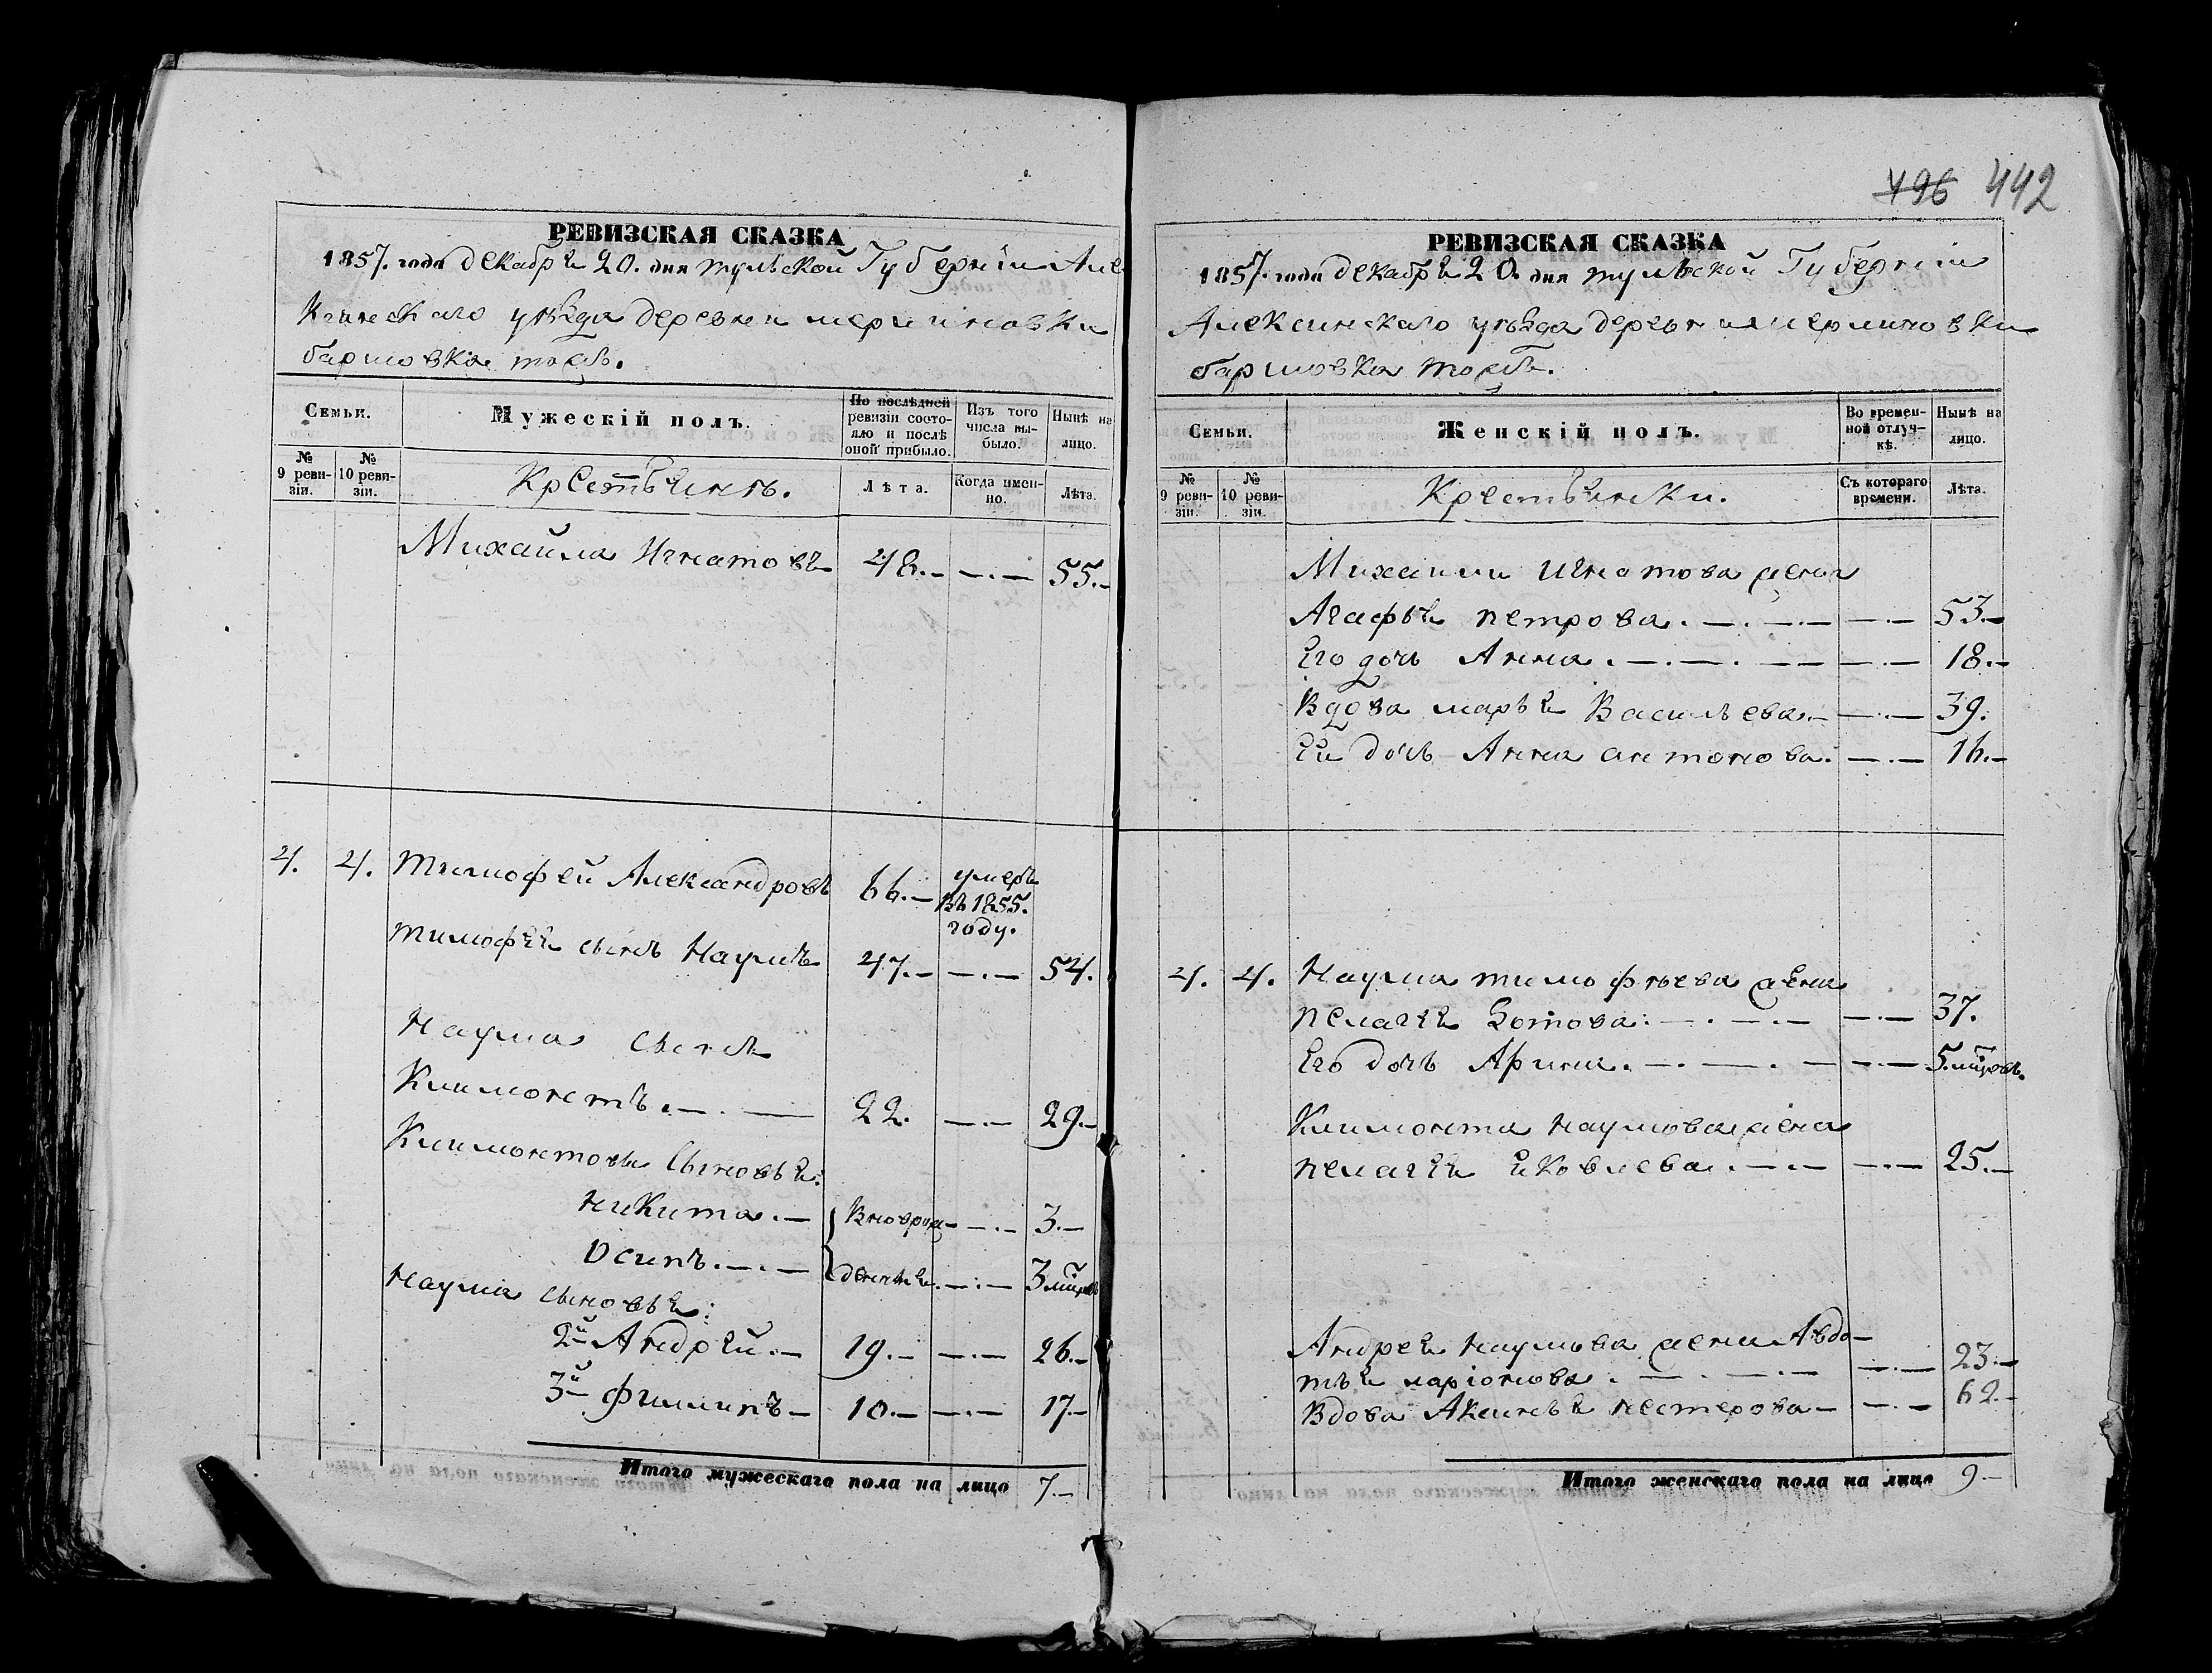 РЕВИЗСКАЯ СКАЗКА
1857. года декабря 20. дня тульской Губерніи Але
ксинскаго уѣзда деревни
тожъ.
Семьи.
Мужескій полъ.
По послѣдней ревизіи состояло и послѣ оной прибыло.
Изъ того числа выбыло.
Нынѣ на лицо.
№ 9 ревизіи.
№ 10 ревизіи.
Крестьянъ.
Лѣта.
Когда именно.
Лѣта.
Михайла Игнатовъ 48.— —.— 55.—
4. 4. тимофей Александровъ 66.— умеръ въ 1855. году.
тимофея сынъ Наумъ 47.— —.— 54.
Наума сынъ
Климонтъ.—.— 22. —.— 29.—
Климонтовы сыновья:
никита.— вноврож— —.— 3.—
Осипъ.—.— денныя.—.— 3 мѣсяцовъ
Наума сыновья:
2й Андрей.— 19.— —.— 26.—
3й филипъ— 10.— —.— 17.—
Итого мужескаго пола на лицо 7.—
496 442
РЕВИЗСКАЯ СКАЗКА
1857. года декабря 20. дня тульской Губерніи
Алексинскаго уѣзда деревни
тожъ.
Семьи.
Женскій полъ.
Во временной отлучкѣ.
Нынѣ на лицо.
№ 9 ревизіи.
№ 10 ревизіи.
Крестьянки.
Съ котораго времени.
Лѣта.
Михайли Игнатова жена
Агафья петрова.—.—.— —.— 53.—
Его дочь Анна.—.—.—— —.— 18.—
Вдова марья Васильева.— —.— 39.
Ея дочь Анна антонова. —.— 16.—
4. 4. Наума тимофѣева жена
пелагея Зотова.—.—.— —.— 37.
Его дочь Арина.—.—.— —.— 5. мѣсяцовъ.
Климонта наумова жена
пелагея яковлева.—.— —.— 25.—
Андрея наумова жена Авдо—
тья ларіонова.—.—.— —.— 23.—
Вдова Аксинья нестерова— —.— 62.—
Итого женскаго пола на лицо 9—